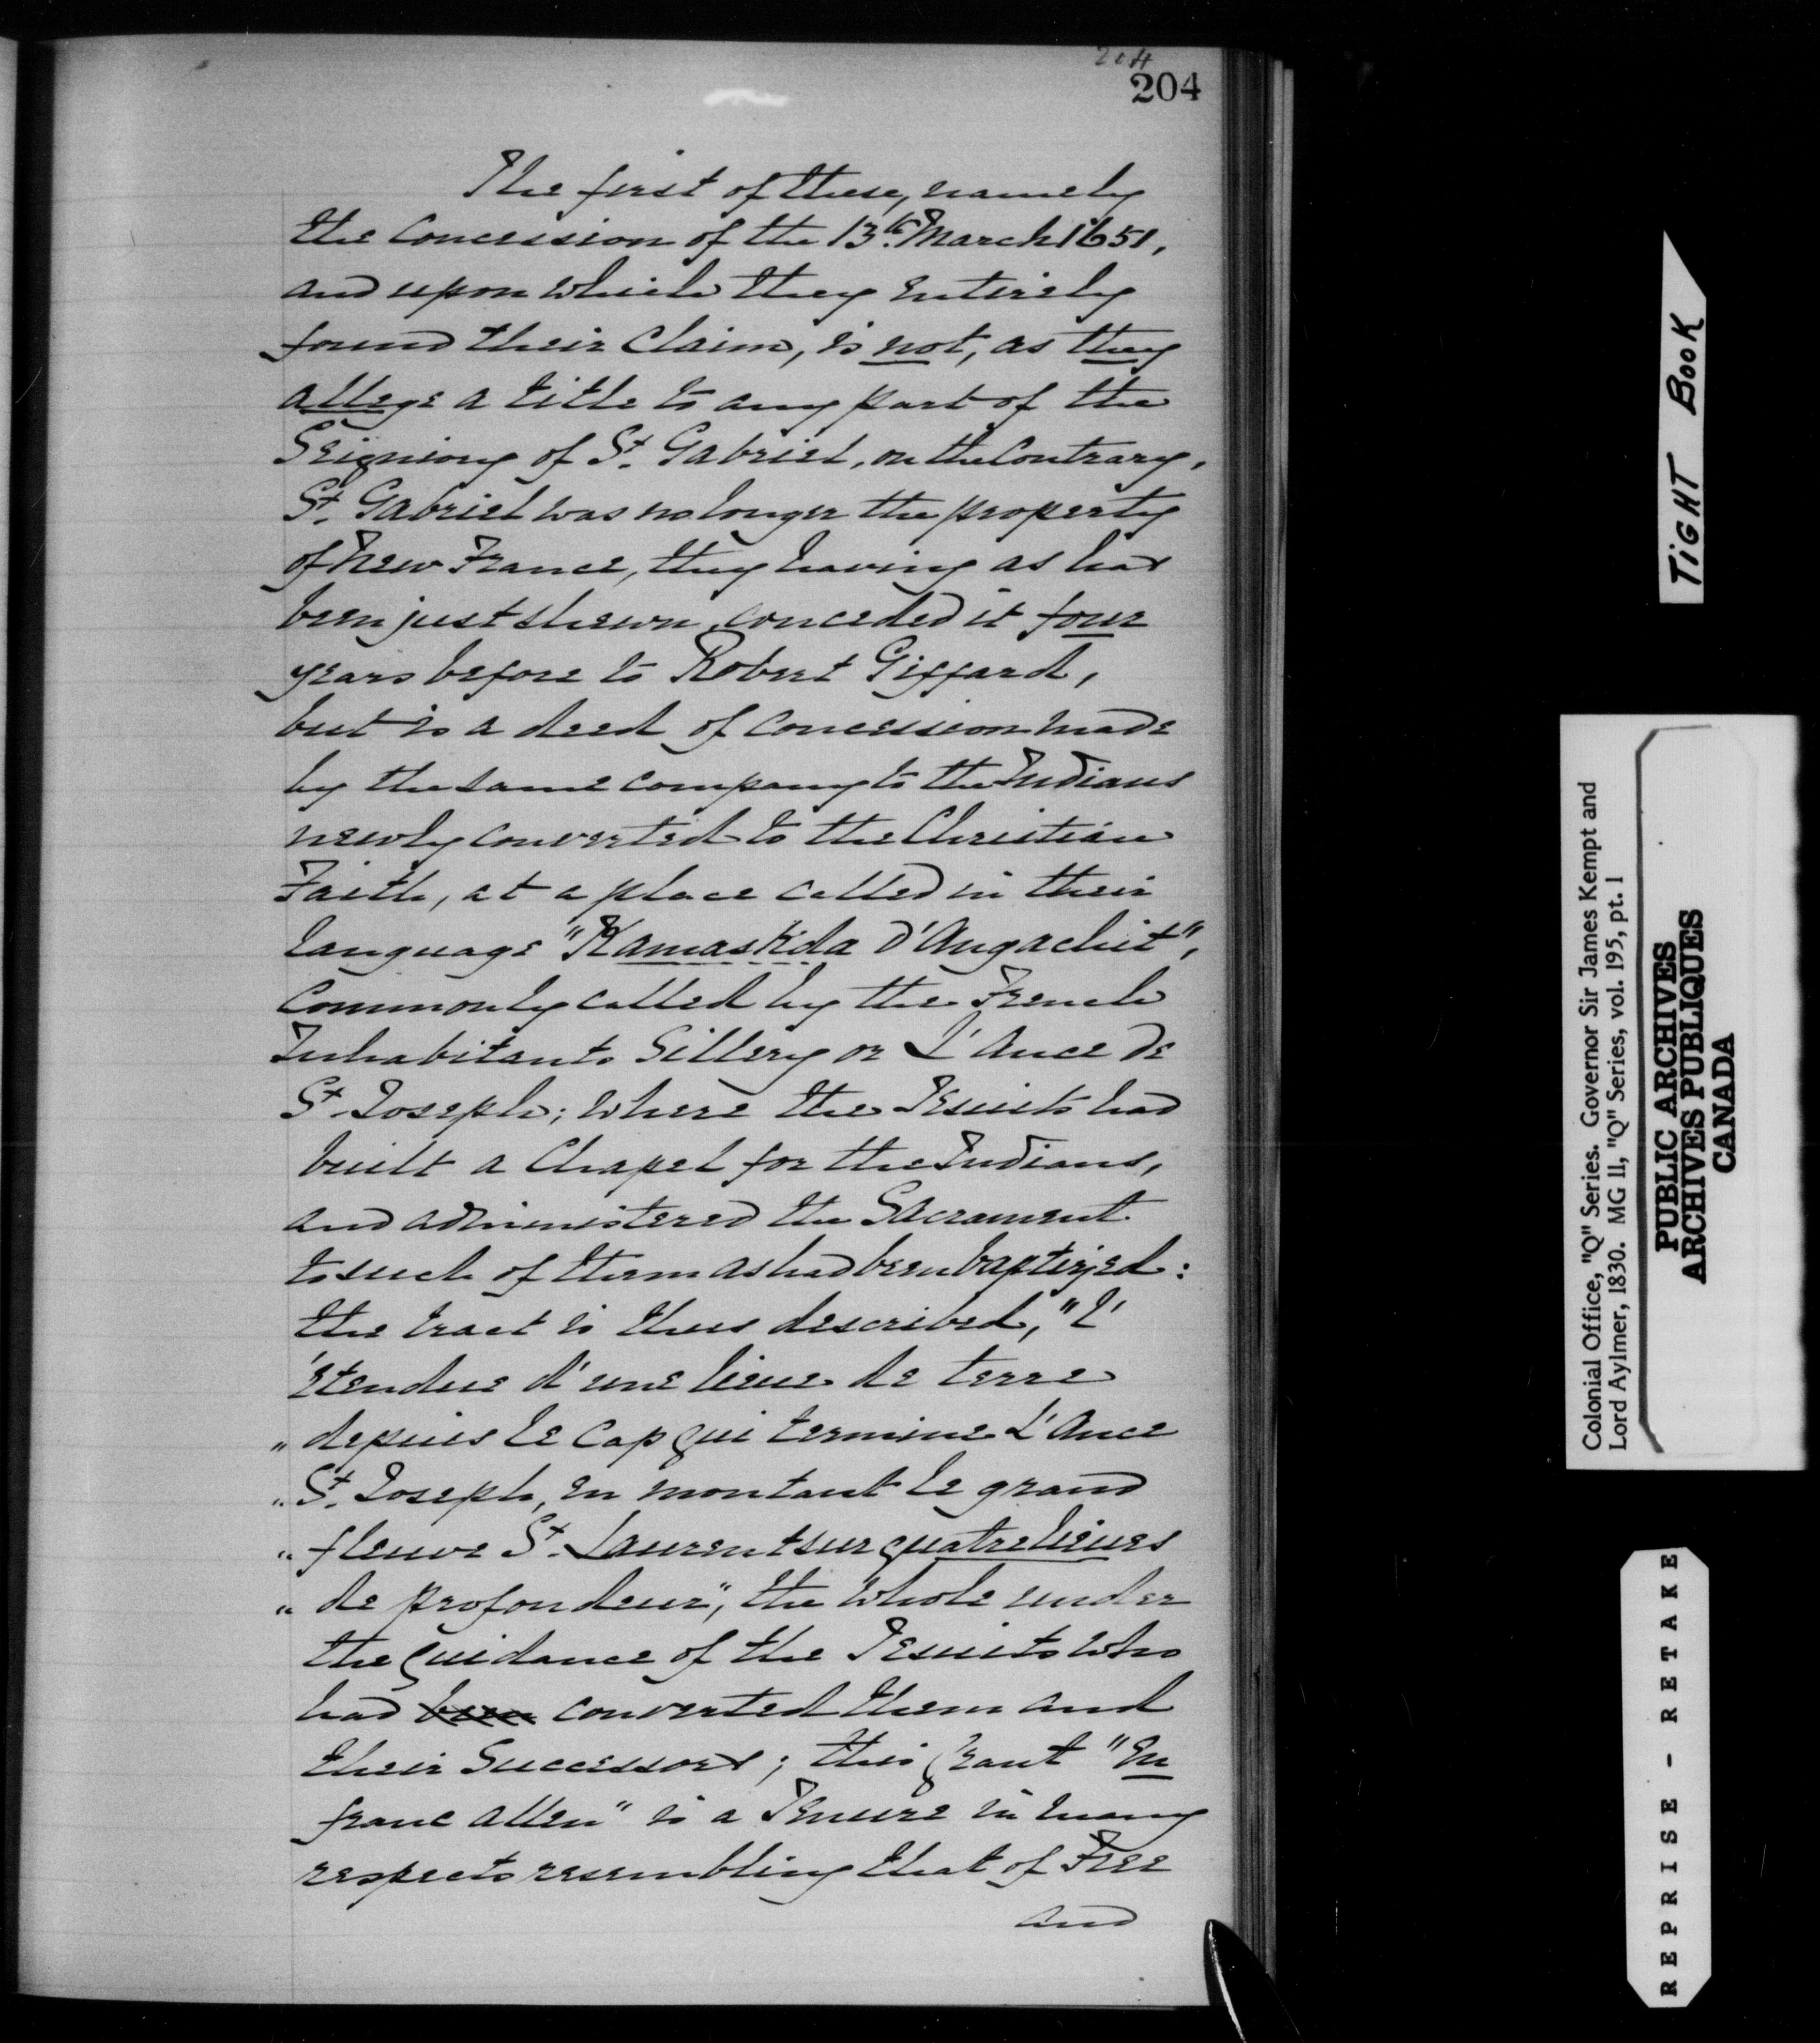 204
204
The first of these, namely
the Concession of the 13th March 1651,
and upon which they entirely
found their Claim, is not, as they
allege a title to any part of the
Seigniory of St. Gabriel, on the Contrary,
St. Gabriel was no longer the property
of New France, they having as has
been just shewn, conceded it four
years before to Robert Giffard,
but is a deed of Concession made
by the same company to the Indians
newly converted to the Christian
Faith, at a place called in their
language "Kamaskda D'Angachit",
Commonly called by the French
Inhabitants Sillery or L'Ance de
St. Joseph; where the Jesuits had
built a Chapel for the Indians,
and administered the Sacrament
to such of them as had been baptized:
the tract is thus described, "L'
'Etendue d'une lieue de terre
" depuis le Cap qui termine L'Ance
" St. Joseph, en montant le grand
" fleuve St. Laurent sur quatre lieues
" de profondeur", the whole under
the Guidance of the Jesuits who
had been converted them and
their Successors; this Grant "En
franc alleu" is a Tenure in many
respects resembling that of Free
and
TIGHT BOOK
Colonial Office, "Q" Series. Governor Sir James Kempt and
Lord Aylmer, 1830. MG 11, "Q" Series, vol. 195, pt. 1
PUBLIC ARCHIVES
ARCHIVES PUBLIQUES
CANADA
REPRISE - RETAKE